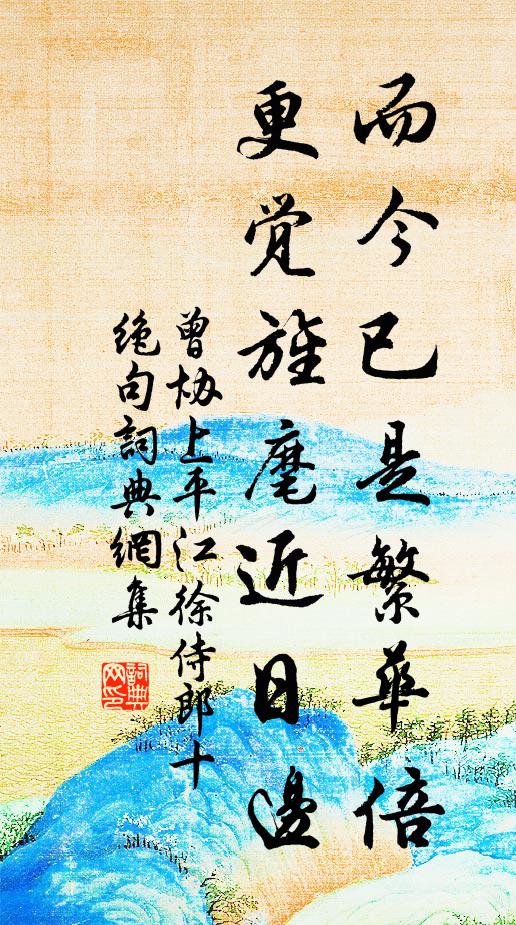 而今已是繁華倍
更觉旌麾近日邊
曾协上平江徐侍郎十
绝句詞典網集
詞典网印